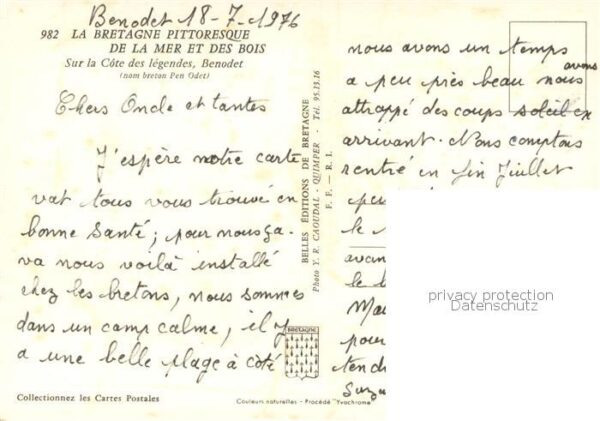 Benodet 18-7-1976
982 LA BRETAGNE PITTORESQUE
DE LA MER ET DES BOIS
Sur la Côte des légendes, Benodet
(nom breton Pen Odet)
Chers Oncle et tantes
J'espère notre carte
vat tous vous trouvé en
bonne santé; pour nous ça
va nous voilà installé
chez les bretons, nous sommes
dans un camp calme, il y
a une belle plage à côté
Collectionnez les Cartes Postales
BELLES ÉDITIONS DE BRETAGNE
Photo Y. R. CAOUDAL - QUIMPER - Tél. 95.15.16
F. F. - R. I.
BRETAGNE
Couleurs naturelles - Procédé "Yvachrome"
nous avons un temps
a peu près beau nous avons
attrappé des coups soleil en
arrivant. Nous comptons
rentré en fin Juillet
le
avan
le
pour
tend
Suzu
privacy protection
Datenschutz